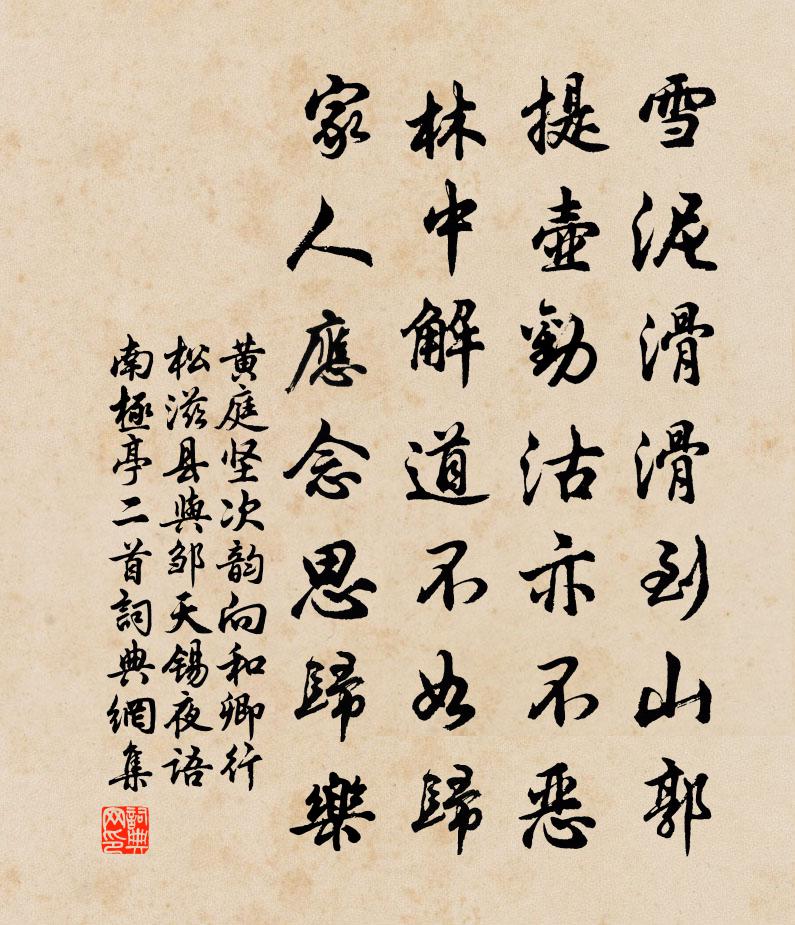 雪泥滑滑到山郭
提壺勸沽亦不惡
林中解道不如歸
家人應念思歸樂
黄庭坚次韵向和卿行
松滋县與邹天锡夜语
南極亭二首詞典網集
詞典网印